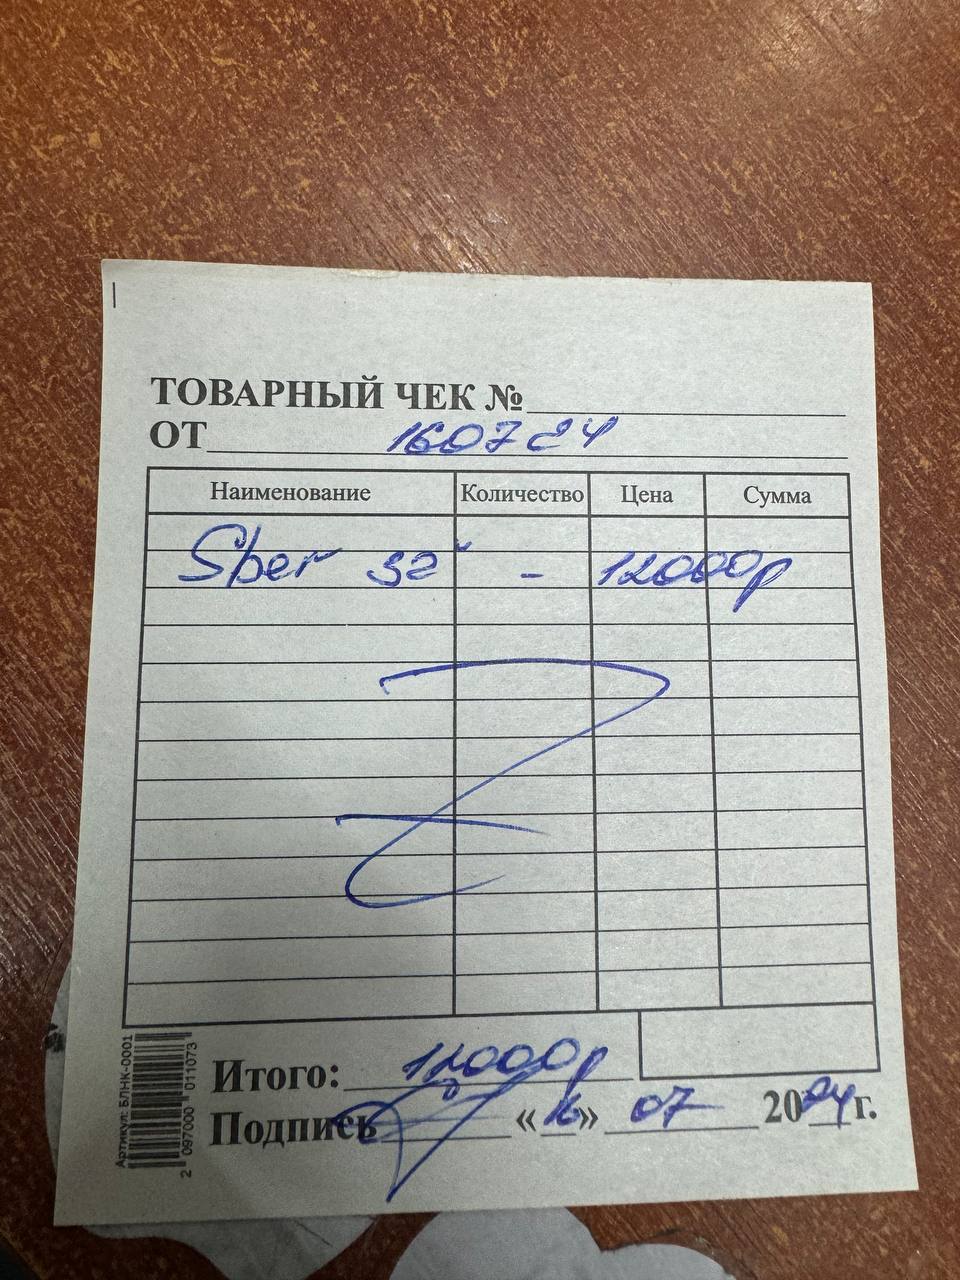 ТОВАРНЫЙ ЧЕК №
ОТ 160724
Наименование Количество Цена Сумма
Sber 32" - 12000р
Итого: 12000р
Подпись «16» 07 2024г.
Артикул: БЛНК-0001
2 097000 011073